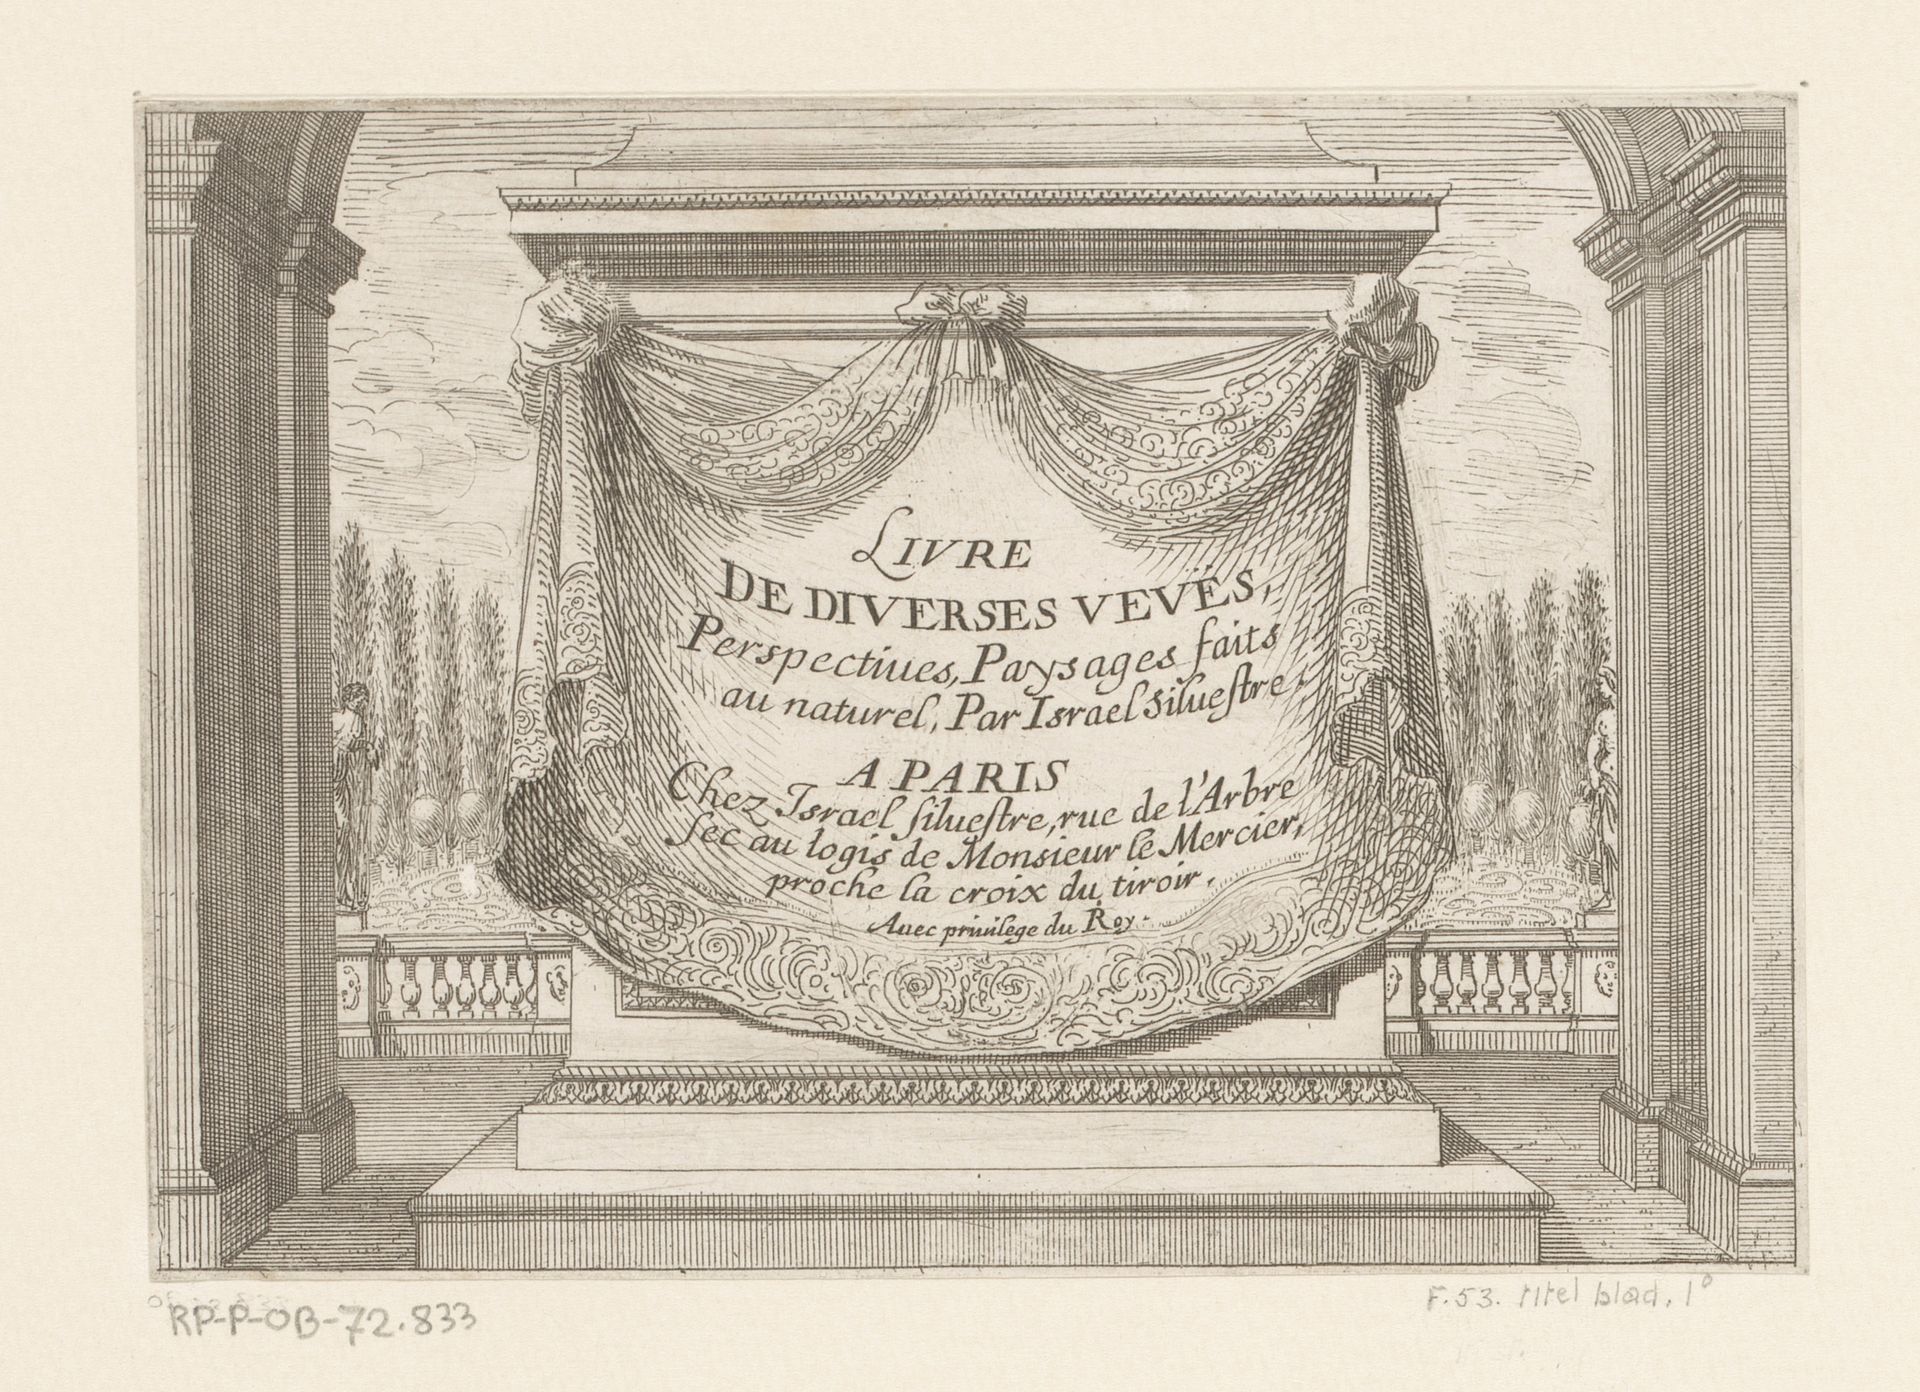 LIVRE
DE DIVERSES VEVËS,
Perspectiues, Paysages faits
au naturel, Par Israel Silueſtre.
A PARIS
Chez Israel ſilueſtre, rue de l'Arbre
ſec au logis de Monsieur le Mercier,
proche la croix du tiroir.
Auec priuilege du Roy.
RP-P-OB-72.833
F.53. titel blad. 1°